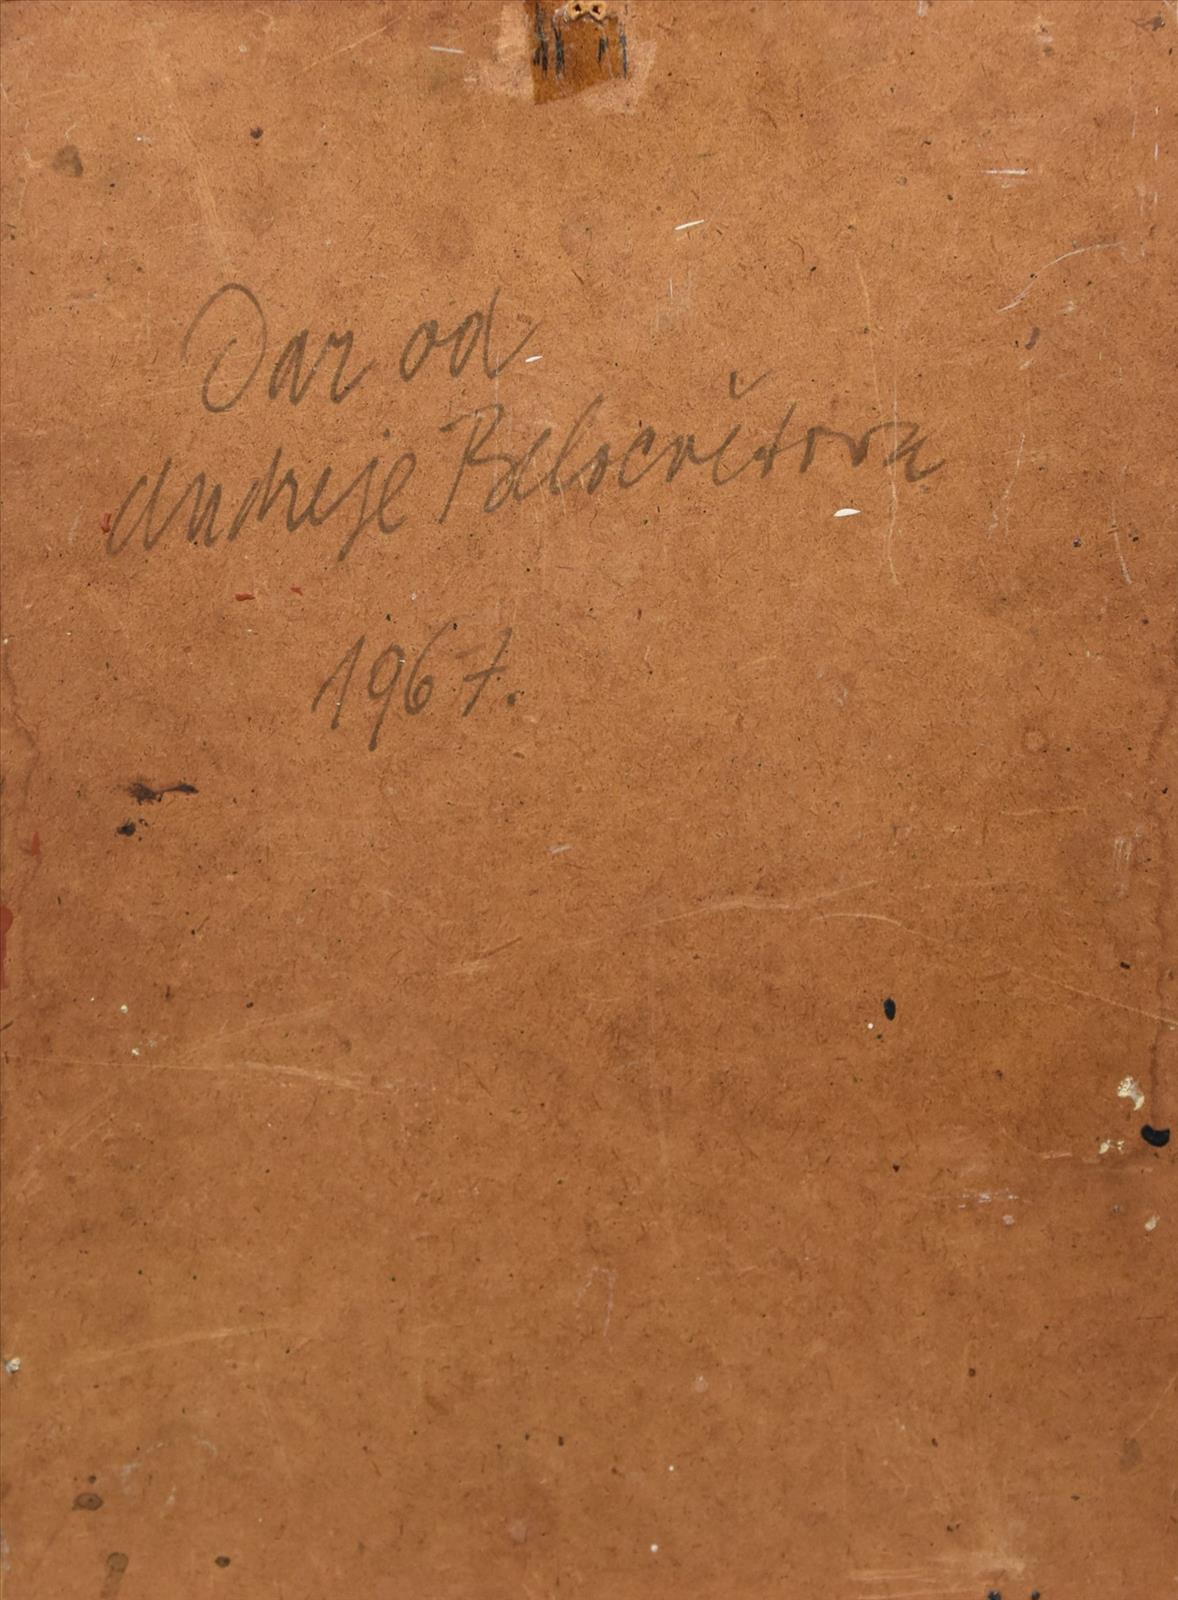 Dar od
Andreje Belocvětova
1967.